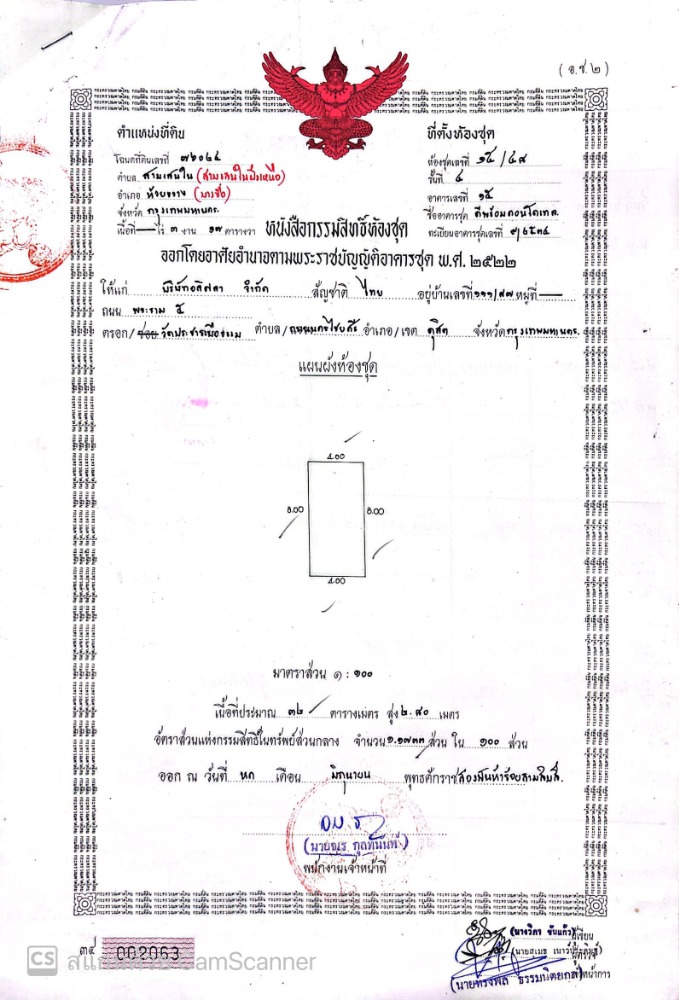 (อ.ช.๒)
ตำแหน่งที่ดิน
ที่ตั้งห้องชุด
โฉนดที่ดินเลขที่ ๓๖๐๒๔
ห้องชุดเลขที่ ๑๕/๔๙
ตำบล สามเสนใน (สามเสนในฝั่งเหนือ)
ชั้นที่ ๔
อำเภอ ห้วยขวาง (บางซื่อ)
อาคารเลขที่ ๑๕
จังหวัด กรุงเทพมหานคร
ชื่ออาคารชุด
เนื้อที่ — ไร่ ๓ งาน ๑๗ ตารางวา
ทะเบียนอาคารชุดเลขที่ ๙/๒๕๓๔
หนังสือกรรมสิทธิ์ห้องชุด
ออกโดยอาศัยอำนาจตามพระราชบัญญัติอาคารชุด พ.ศ. ๒๕๒๒
ให้แก่ บริษัท จำกัด สัญชาติ ไทย อยู่บ้านเลขที่ ๑๑๑/๙๗ หมู่ที่ —
ถนน พระราม ๕
ตรอก/ซอย ตำบล/ถนนนครไชยศรี อำเภอ/เขต ดุสิต จังหวัด กรุงเทพมหานคร.
แผนผังห้องชุด
4.00
8.00
8.00
4.00
มาตราส่วน ๑ : ๑๐๐
เนื้อที่ประมาณ ๓๒ ตารางเมตร สูง ๒.๔๐ เมตร
อัตราส่วนแห่งกรรมสิทธิ์ในทรัพย์ส่วนกลาง จำนวน ๑.๑๗๓๓ ส่วน ใน ๑๐๐ ส่วน
ออก ณ วันที่ หก เดือน มิถุนายน พุทธศักราช สองพันห้าร้อยสามสิบสี่.
พนักงานเจ้าหน้าที่
๓๔ 002063
ผู้เขียน
ผู้ตรวจ
CS สแกนด้วย CamScanner